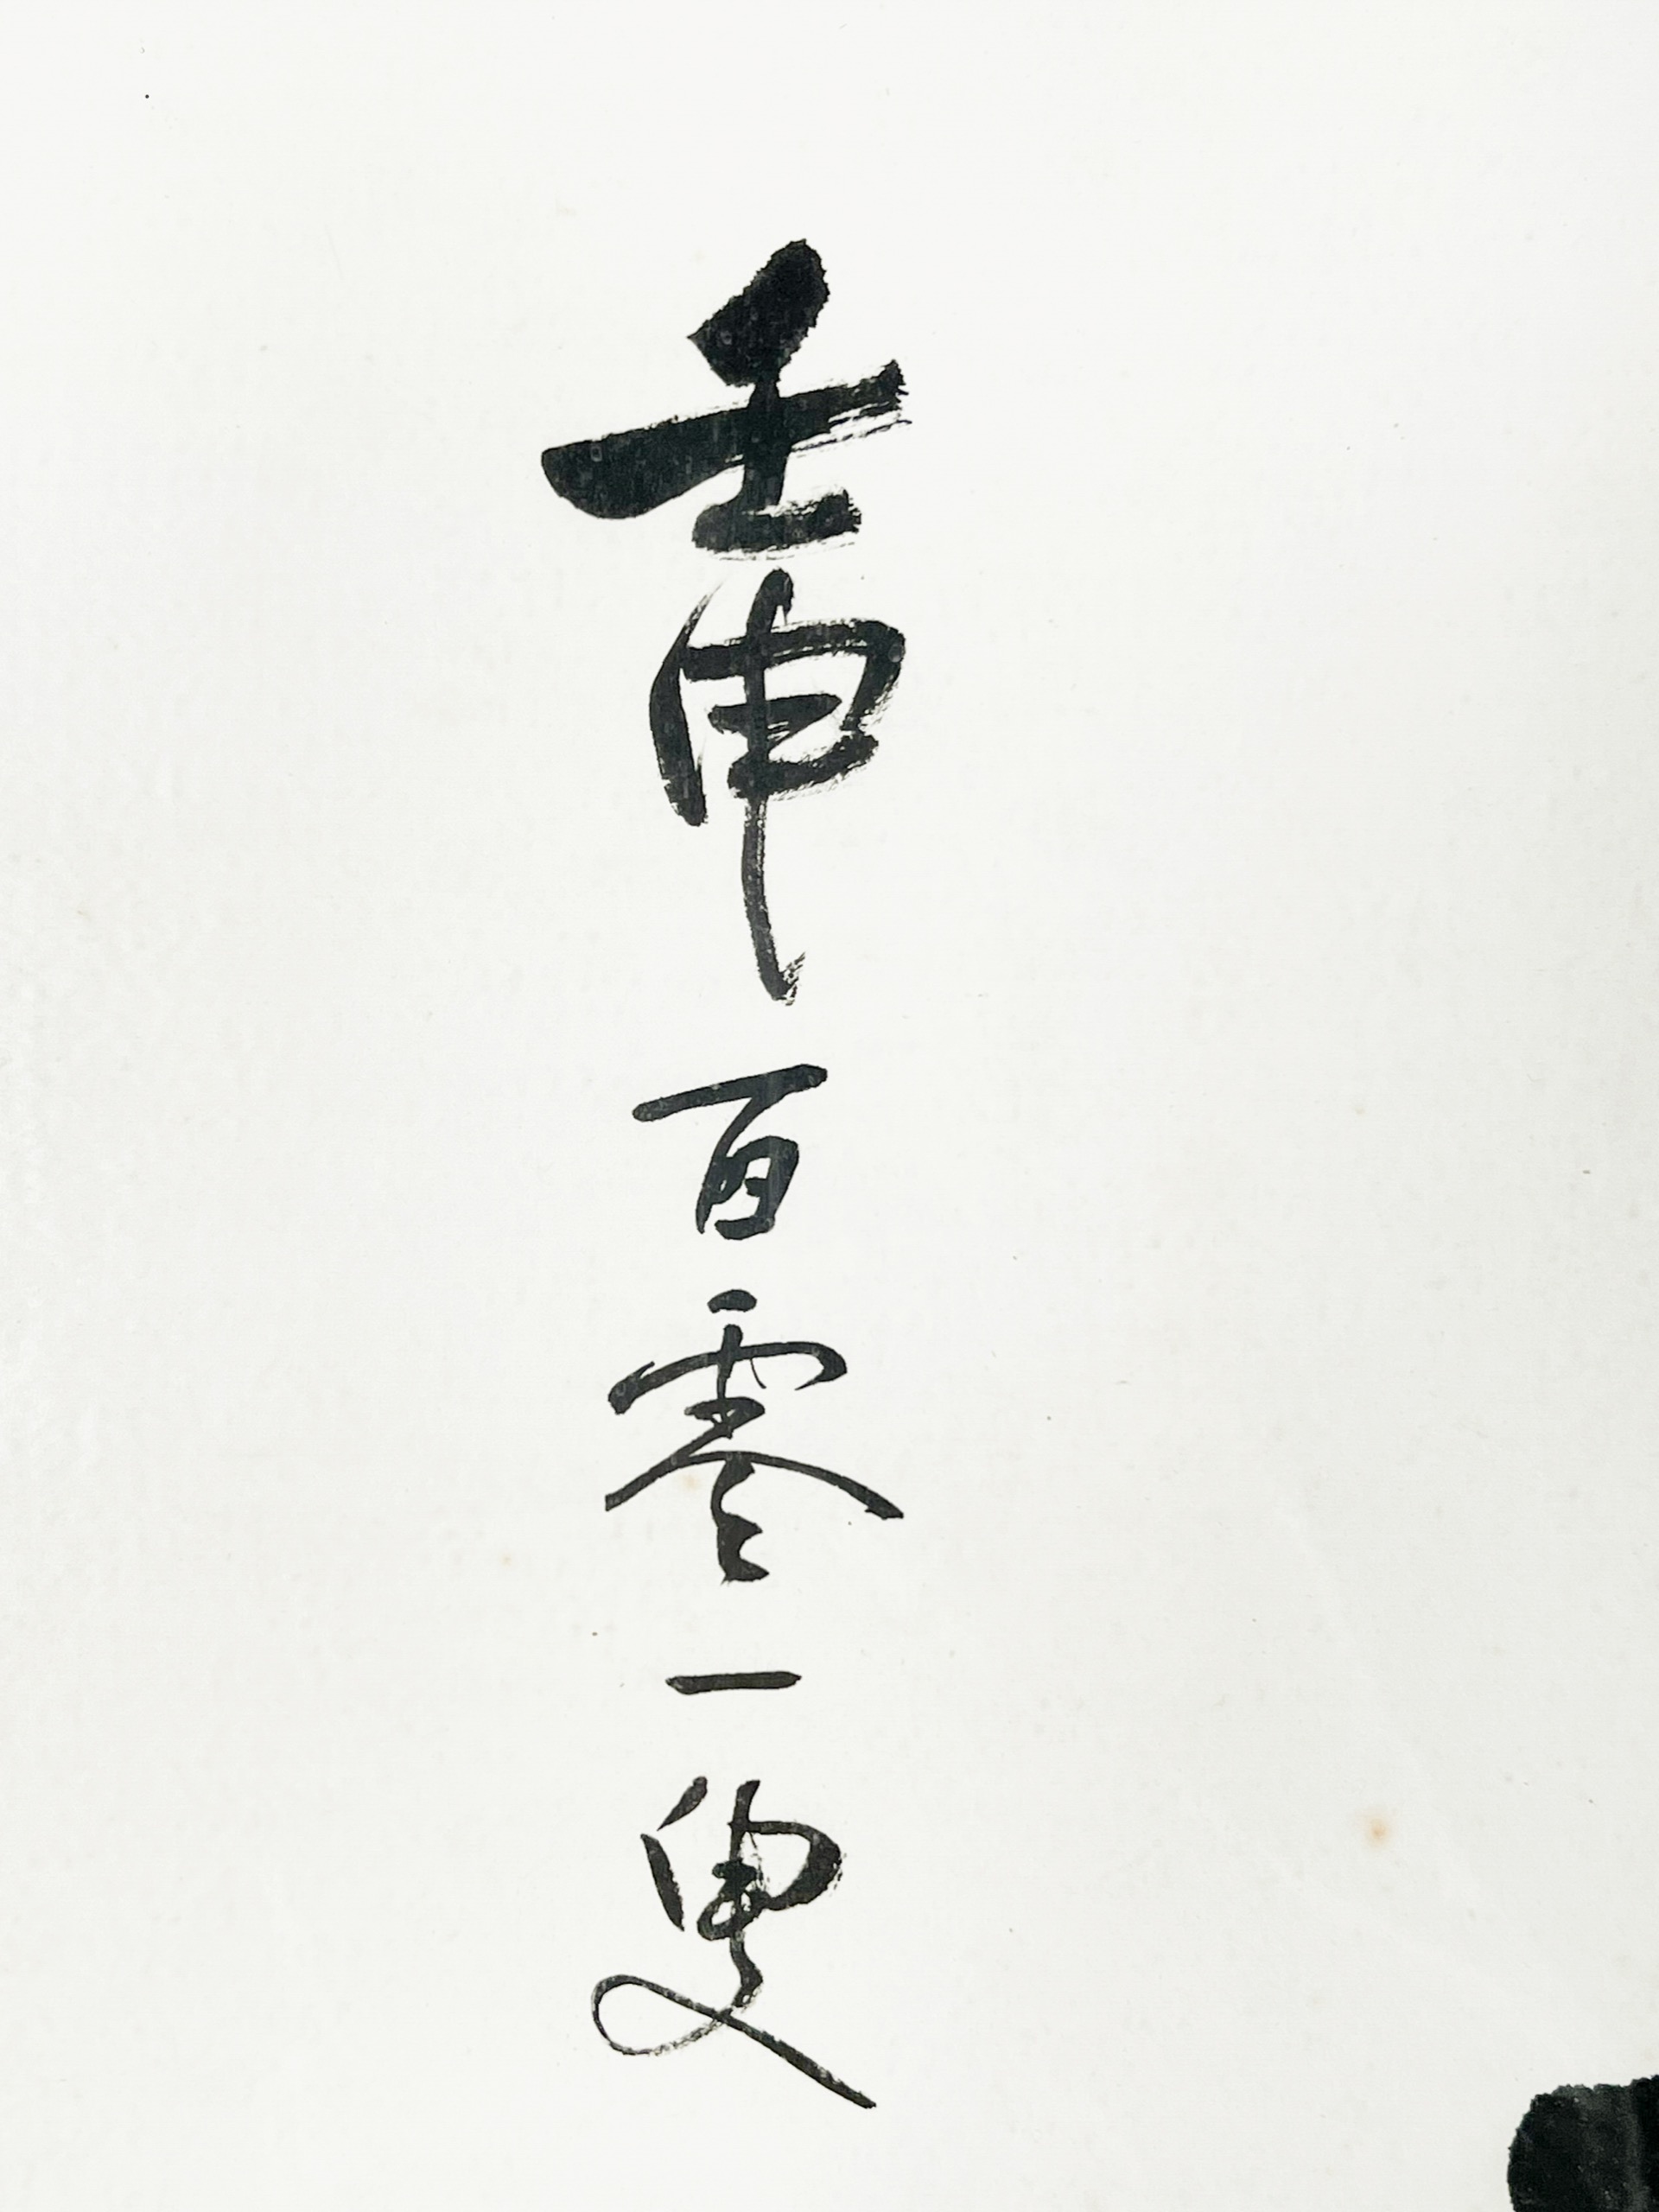 壬申百零一叟